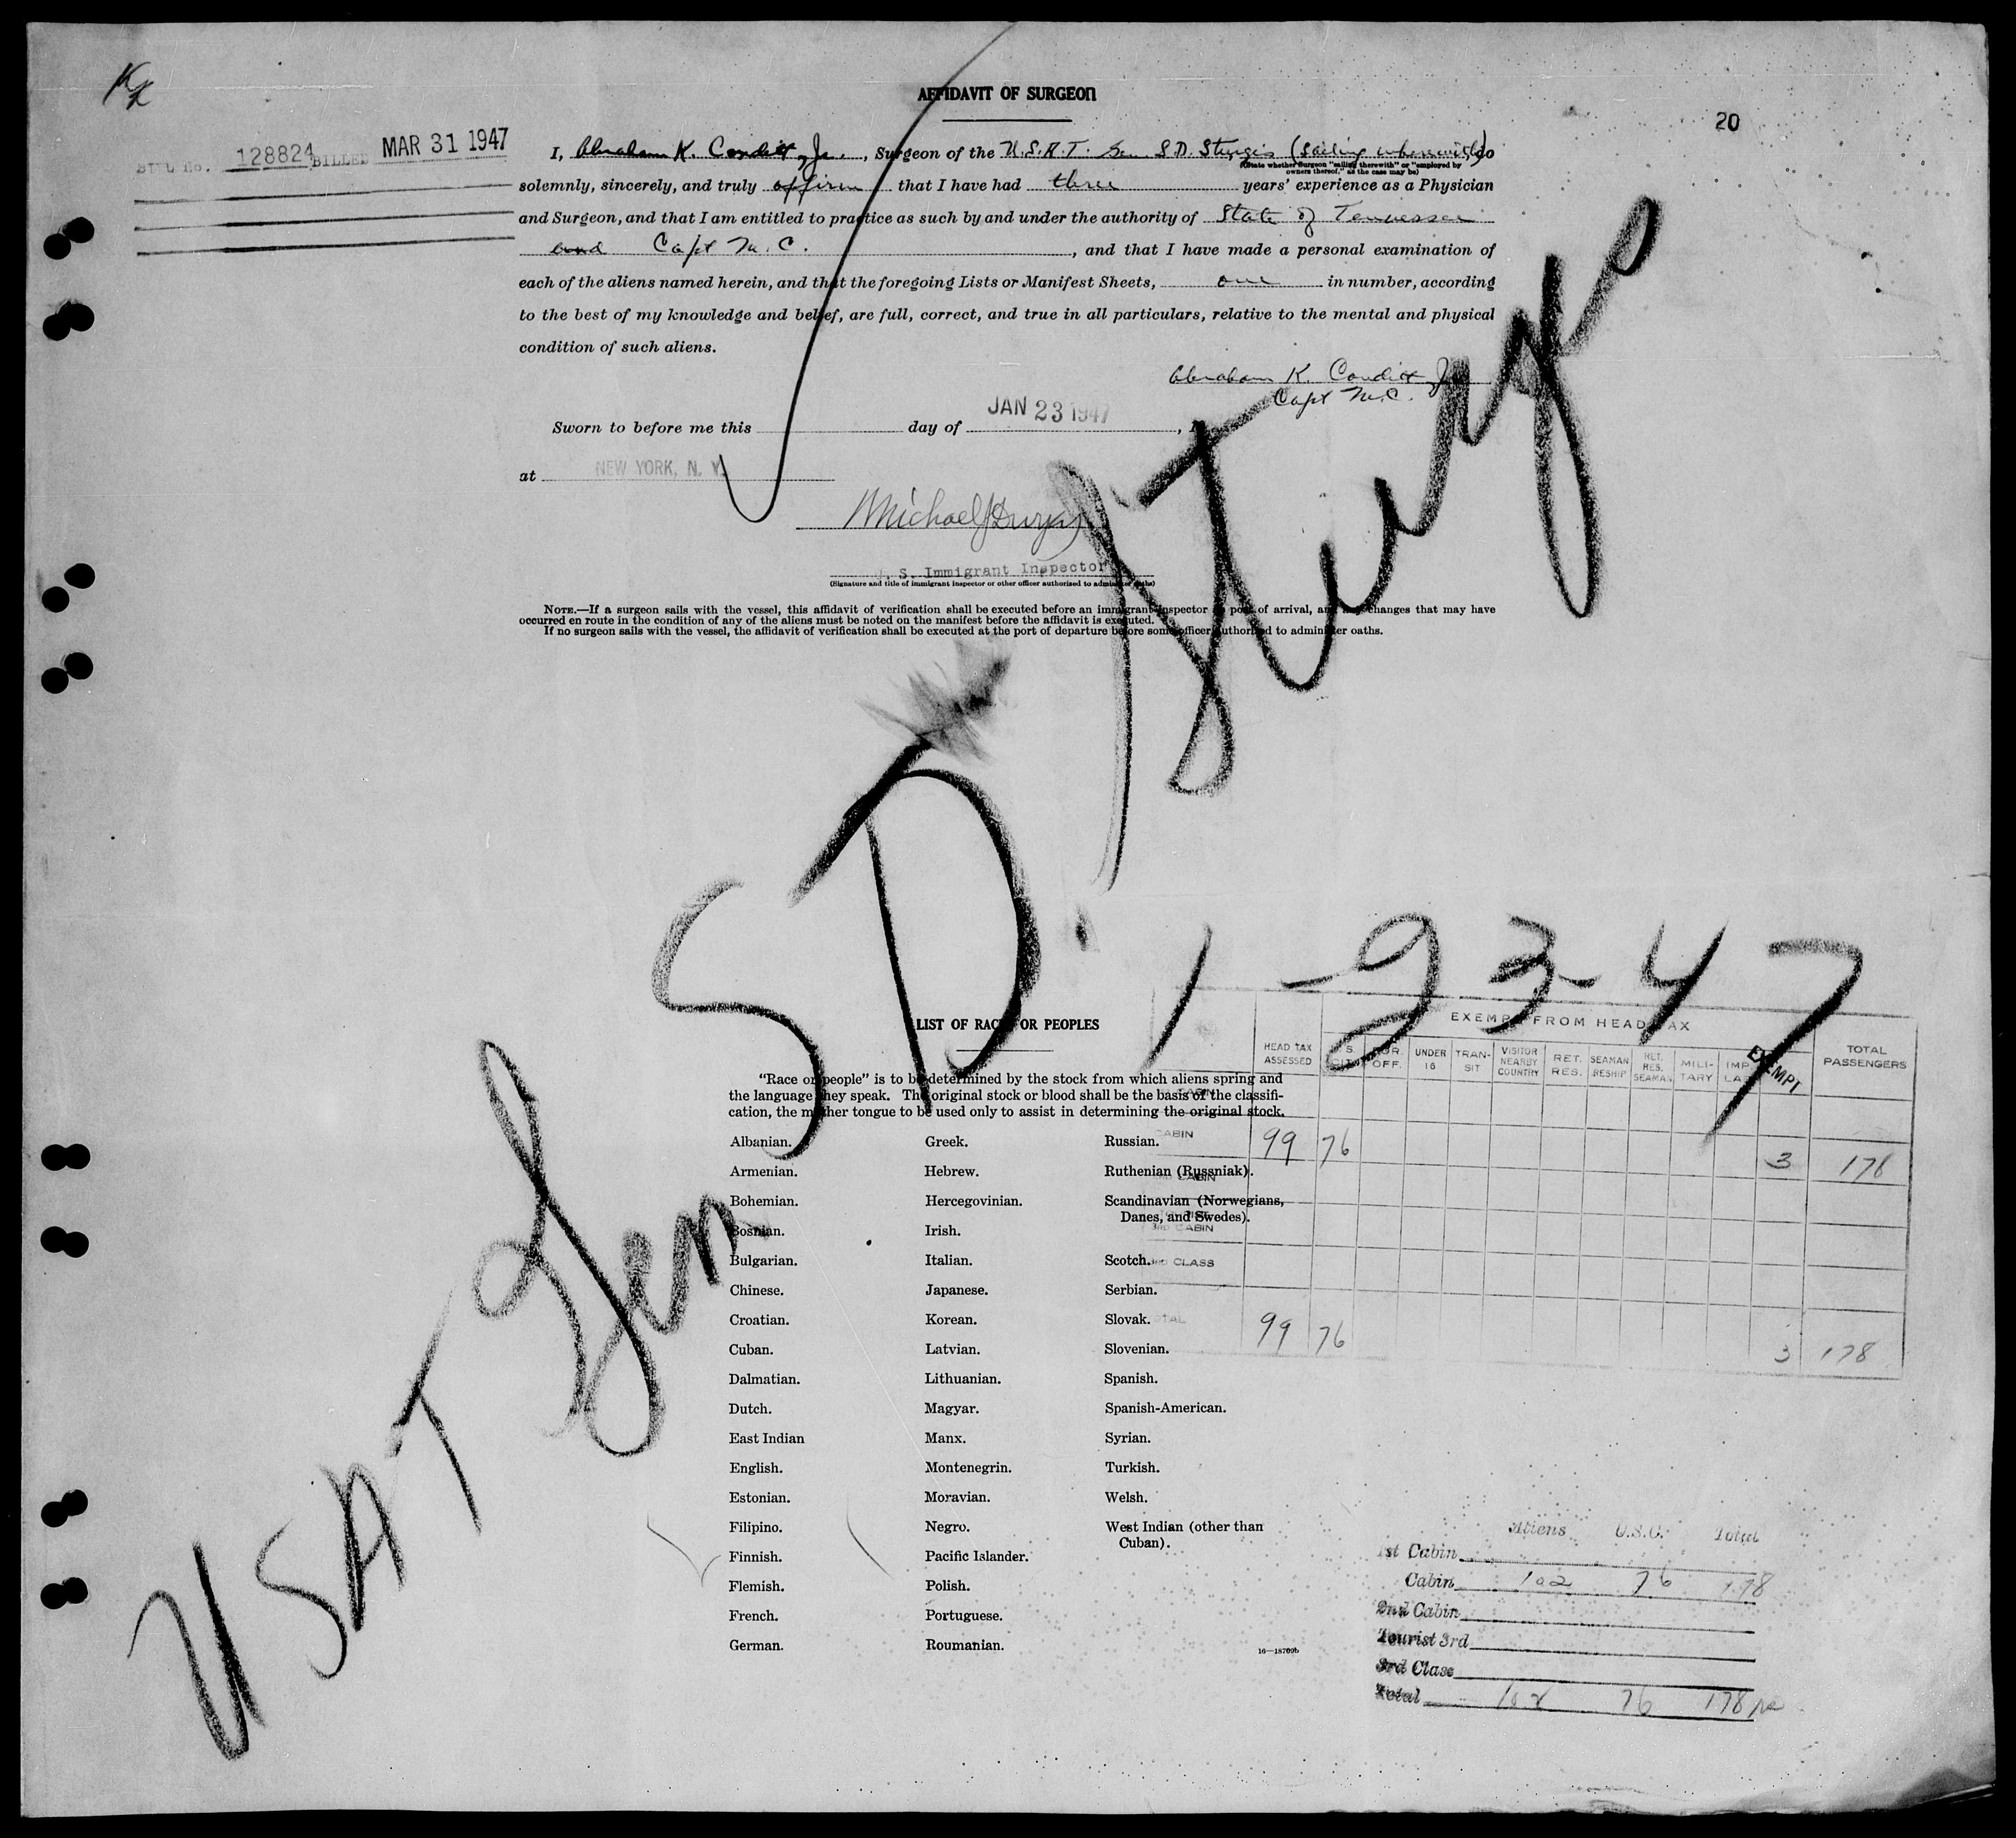 KK
AFFIDAVIT OF SURGEON
20
BILL No. 128824 BILLED MAR 31 1947
I, Abraham K. Condit, Jr., Surgeon of the U.S.A.T. Gen. S.D. Sturgis (sailing wherewith) do
(State whether Surgeon "sailing therewith" or "employed by
owners thereof," as the case may be)
solemnly, sincerely, and truly affirm that I have had three years' experience as a Physician
and Surgeon, and that I am entitled to practice as such by and under the authority of State of Tennessee
and Capt M.C., and that I have made a personal examination of
each of the aliens named herein, and that the foregoing Lists or Manifest Sheets, one in number, according
to the best of my knowledge and belief, are full, correct, and true in all particulars, relative to the mental and physical
condition of such aliens.
Abraham K. Condit Jr
Capt M.C.
Sworn to before me this day of JAN 23 1947, 1
at NEW YORK, N. Y.
Michael J Dwyer
U. S. Immigrant Inspector
(Signature and title of immigrant inspector or other officer authorized to administer oaths)
NOTE.—If a surgeon sails with the vessel, this affidavit of verification shall be executed before an immigrant inspector at port of arrival, and any changes that may have
occurred en route in the condition of any of the aliens must be noted on the manifest before the affidavit is executed.
If no surgeon sails with the vessel, the affidavit of verification shall be executed at the port of departure before some officer authorized to administer oaths.
USAT Gen. S D. Sturgis
1-23-47
LIST OF RACES OR PEOPLES
"Race or people" is to be determined by the stock from which aliens spring and
the language they speak. The original stock or blood shall be the basis of the classifi-
cation, the mother tongue to be used only to assist in determining the original stock.
Albanian. Greek. Russian.
Armenian. Hebrew. Ruthenian (Russniak).
Bohemian. Hercegovinian. Scandinavian (Norwegians,
Danes, and Swedes).
Bosnian. Irish.
Bulgarian. Italian. Scotch.
Chinese. Japanese. Serbian.
Croatian. Korean. Slovak.
Cuban. Latvian. Slovenian.
Dalmatian. Lithuanian. Spanish.
Dutch. Magyar. Spanish-American.
East Indian Manx. Syrian.
English. Montenegrin. Turkish.
Estonian. Moravian. Welsh.
Filipino. Negro. West Indian (other than
Cuban).
Finnish. Pacific Islander.
Flemish. Polish.
French. Portuguese.
German. Roumanian.
16—18709b
EXEMPT FROM HEAD TAX
HEAD TAX ASSESSED U.S. CIT. FOR. OFF. UNDER 16 TRAN- SIT VISITOR NEARBY COUNTRY RET. RES. SEAMAN RESHIP RET. RES. SEAMAN MILI- TARY EXEMPT TOTAL PASSENGERS
CABIN
CABIN 99 76 3 178
CABIN
3RD CABIN
3RD CLASS
TOTAL 99 76 3 178
Aliens U.S.C. Total
1st Cabin
Cabin 102 76 178
2nd Cabin
Tourist 3rd
3rd Class
Total 102 76 178